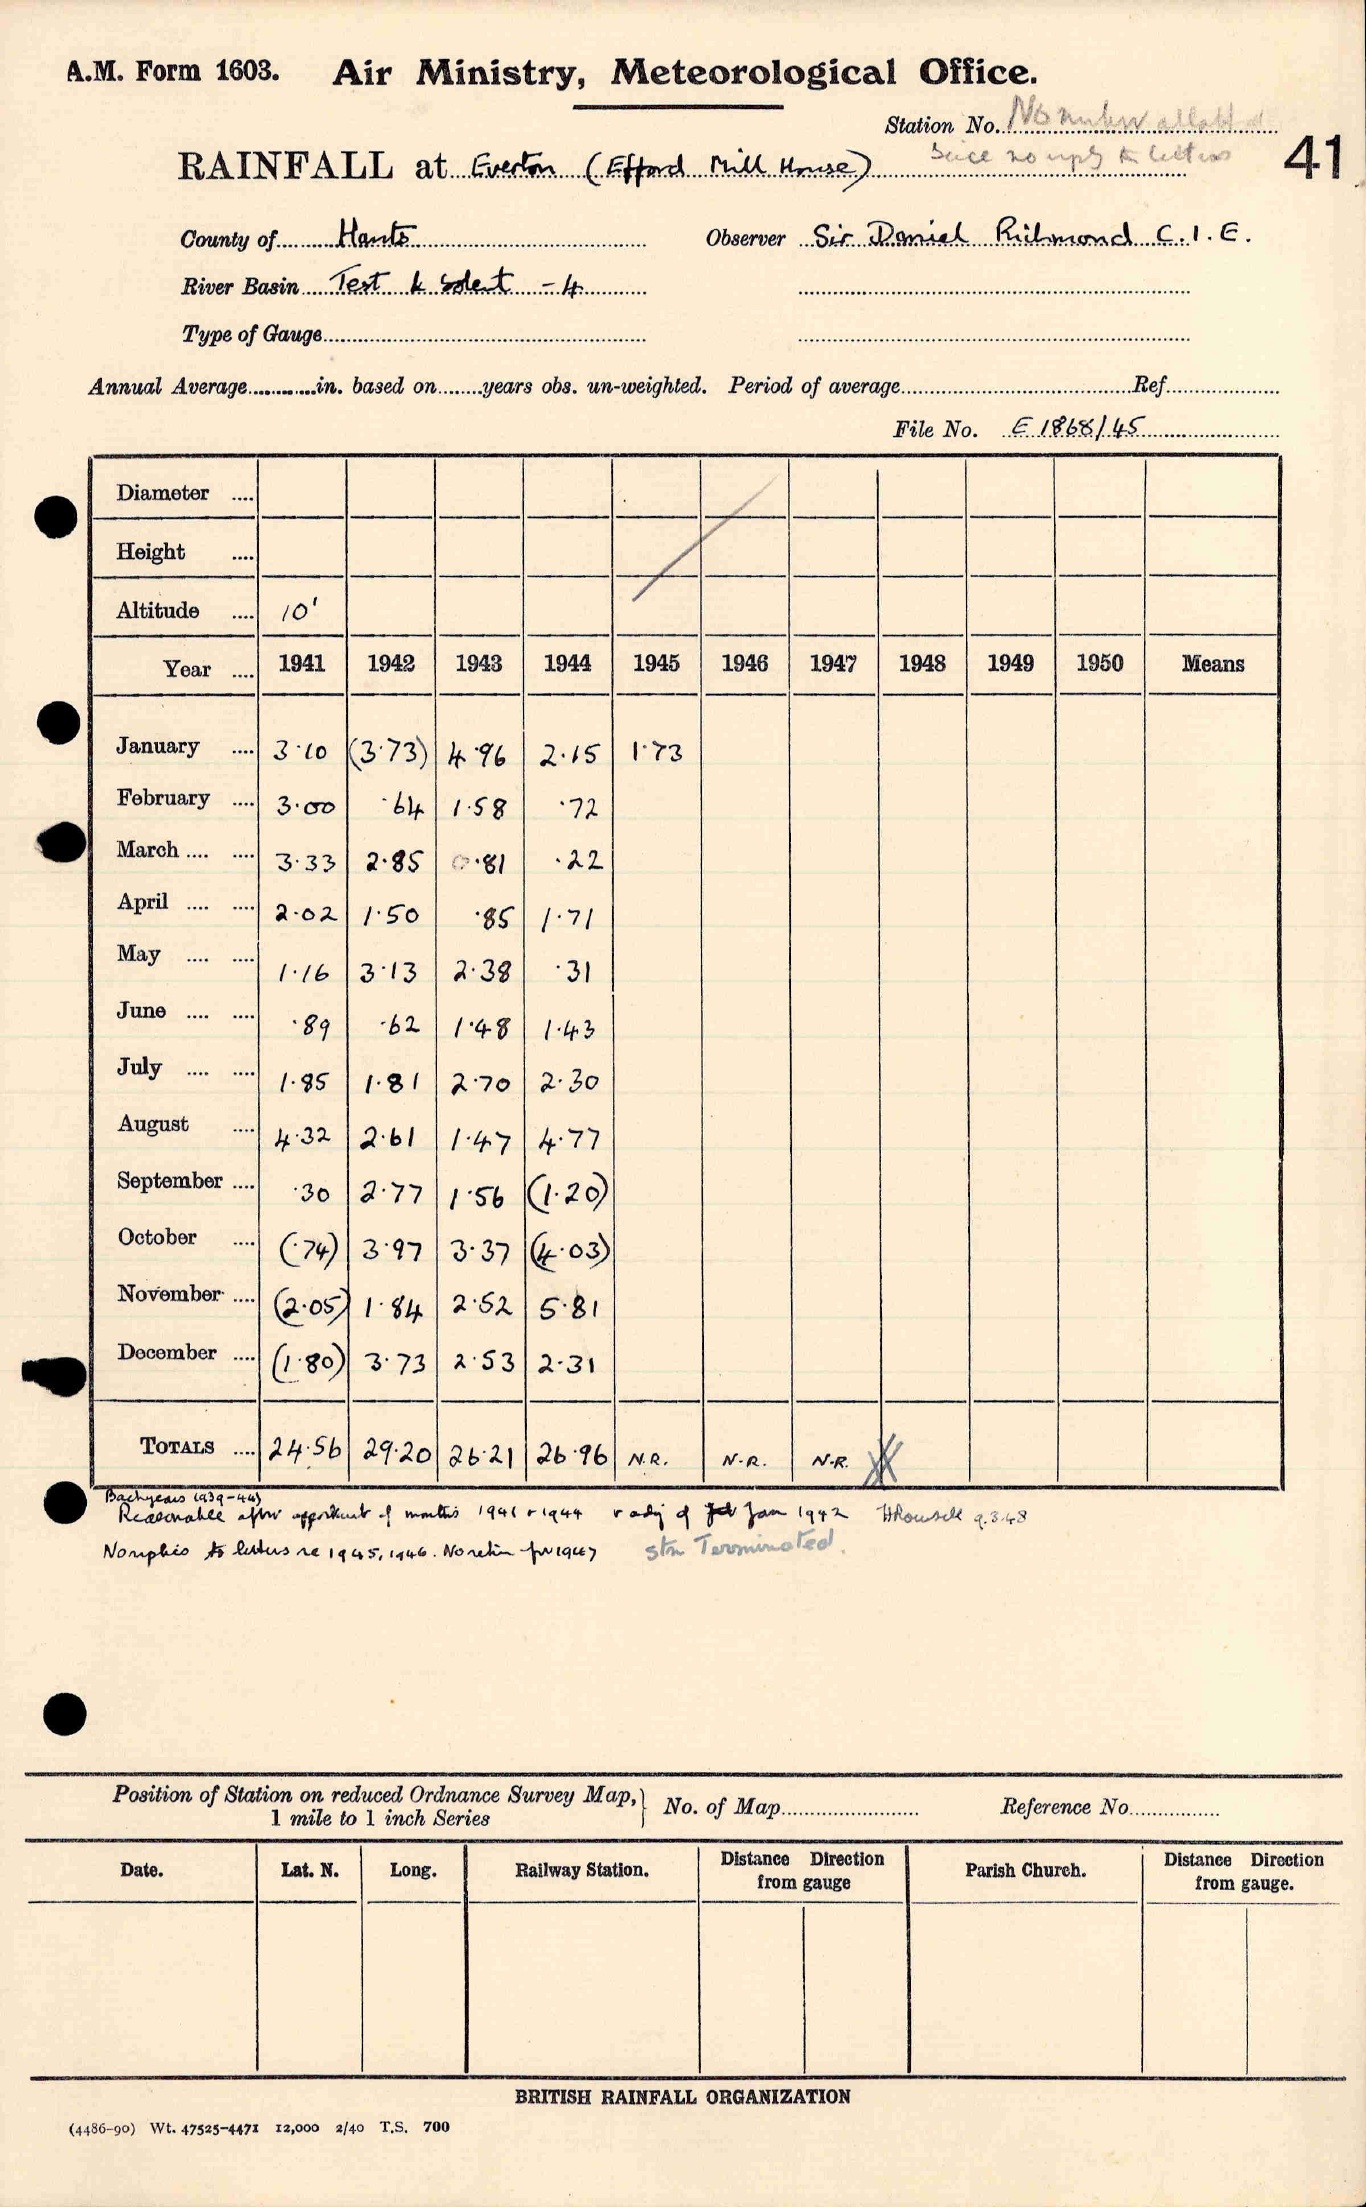 A.M. Form 1603. Air Ministry, Meteorological Office.
Station No. No number allotted
since no reply to letters
41
RAINFALL at Everton (Efford Mill House)
County of Hants Observer Sir Daniel Richmond C.I.E.
River Basin Test & Solent - 4
Type of Gauge
Annual Average in. based on years obs. un-weighted. Period of average Ref
File No. E 1868/45
Diameter ....
Height ....
Altitude .... 10'
Year .... 1941 1942 1943 1944 1945 1946 1947 1948 1949 1950 Means
January .... 3·10 (3·73) 4·96 2·15 1·73
February .... 3·00 ·64 1·58 ·72
March .... .... 3·33 2·85 0·81 ·22
April .... .... 2·02 1·50 ·85 1·71
May .... .... 1·16 3·13 2·38 ·31
June .... .... ·89 ·62 1·48 1·43
July .... .... 1·85 1·81 2·70 2·30
August .... 4·32 2·61 1·47 4·77
September .... ·30 2·77 1·56 (1·20)
October .... (·74) 3·97 3·37 (4·03)
November .... (2·05) 1·84 2·52 5·81
December .... (1·80) 3·73 2·53 2·31
TOTALS .... 24·56 29·20 26·21 26·96 N.R. N.R. N.R.
Backyears 1939-44
Reasonable after apportment of months 1941 & 1944 & adj of Jan 1942 9.3.48
No replies to letters re 1945, 1946. No return for 1947 Stn Terminated.
Position of Station on reduced Ordnance Survey Map,
1 mile to 1 inch Series
No. of Map Reference No.
Date. Lat. N. Long. Railway Station. Distance from gauge Direction Parish Church. Distance Direction from gauge.
BRITISH RAINFALL ORGANIZATION
(4486-90) Wt. 47525-4471 12,000 2/40 T.S. 700